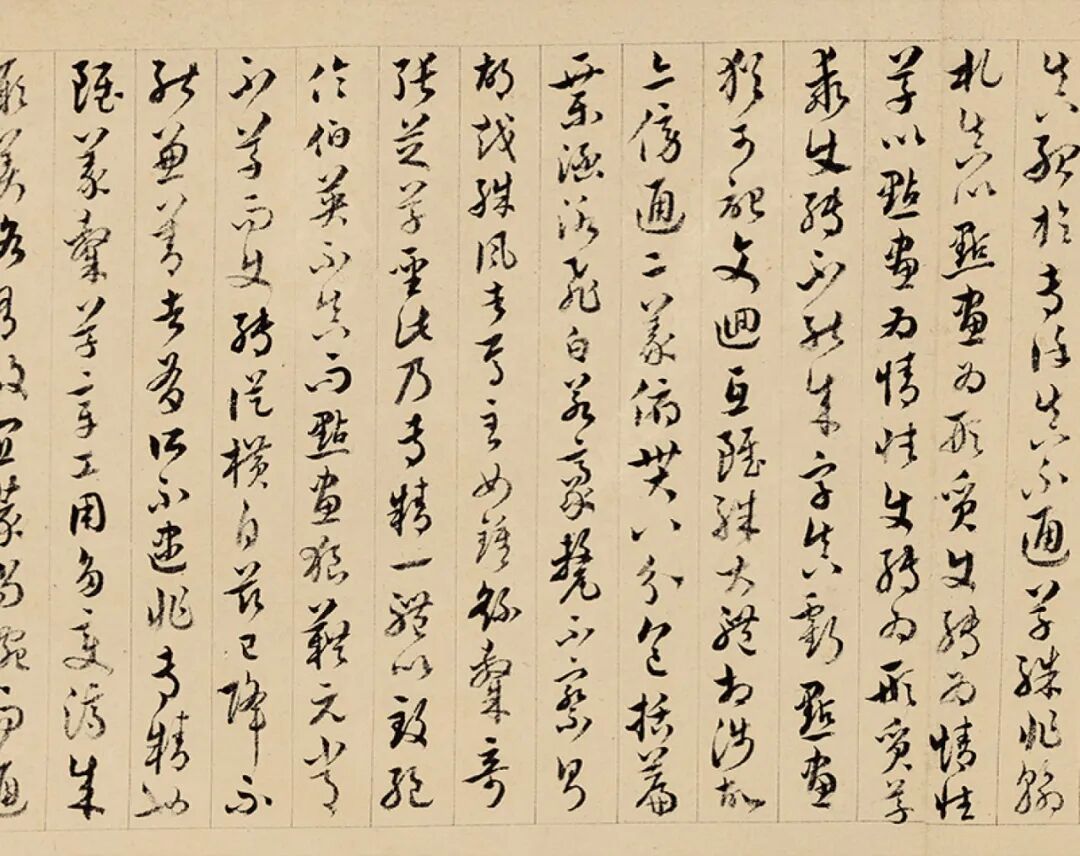 真殆於專謹真不通草殊非翰
札真以點畫為形質使轉為情性
草以點畫為情性使轉為形質草
乖使轉不能成字真虧點畫
猶可記文迴互雖殊大體相涉故
亦傍通二篆俯貫八分包括篇
章涵泳飛白若豪氂不察則
胡越殊風者焉至如鍾繇隸奇
張芝草聖此乃專精一體以致絕
倫伯英不真而點畫狼藉元常
不草而使轉從橫自茲已降不
能兼善者有所不逮非專精也
雖篆隸草章工用多變濟成
厥美各有攸宜篆尚婉而通